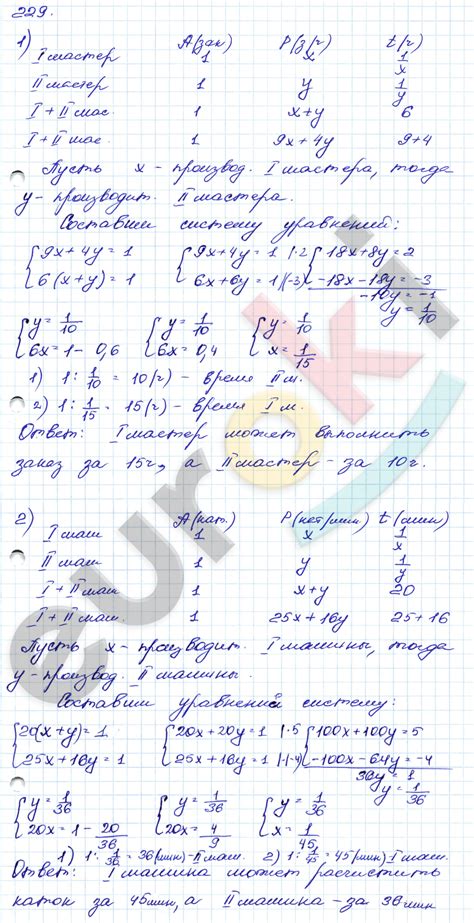 229.
1) A(зак) P(з/ч) t(ч)
I мастер 1 x 1/x
II мастер 1 y 1/y
I + II мас. 1 x+y 6
I + II мас. 1 9x + 4y 9+4
Пусть x - производ. I мастера, тогда
y - производит. II мастера.
Составим систему уравнений:
{9x + 4y = 1 {9x + 4y = 1 |·2 {18x + 8y = 2
{6(x + y) = 1 {6x + 6y = 1 |(-3) {-18x - 18y = -3
-10y = -1
y = 1/10
{y = 1/10 {y = 1/10 {y = 1/10
{6x = 1 - 0,6 {6x = 0,4 {x = 1/15
1) 1 : 1/10 = 10(ч) - время II м.
2) 1 : 1/15 = 15(ч) - время I м.
Ответ: I мастер может выполнить
заказ за 15ч, а II мастер - за 10ч.
2) A(кат.) P(кат/мин) t(мин)
I маш 1 x 1/x
II маш 1 y 1/y
I + II маш 1 x+y 20
I + II маш. 1 25x + 16y 25 + 16
Пусть x - производит. I машины, тогда
y - производ. II машины.
Составим уравнений систему:
{20(x + y) = 1 {20x + 20y = 1 |·5 {100x + 100y = 5
{25x + 16y = 1 {25x + 16y = 1 |·(-4) {-100x - 64y = -4
36y = 1
y = 1/36
{y = 1/36 {y = 1/36 {y = 1/36
{20x = 1 - 20/36 {20x = 4/9 {x = 1/45
1) 1 : 1/36 = 36(мин) - II маш. 2) 1 : 1/45 = 45(мин) I маш.
Ответ: I машина может расчистить
каток за 45 мин, а II машина - за 36 мин
euroki